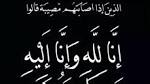 الذين إذا أصابتهم مصيبة قالوا
إِنَّا لِلَّهِ وَإِنَّا إِلَيْهِ